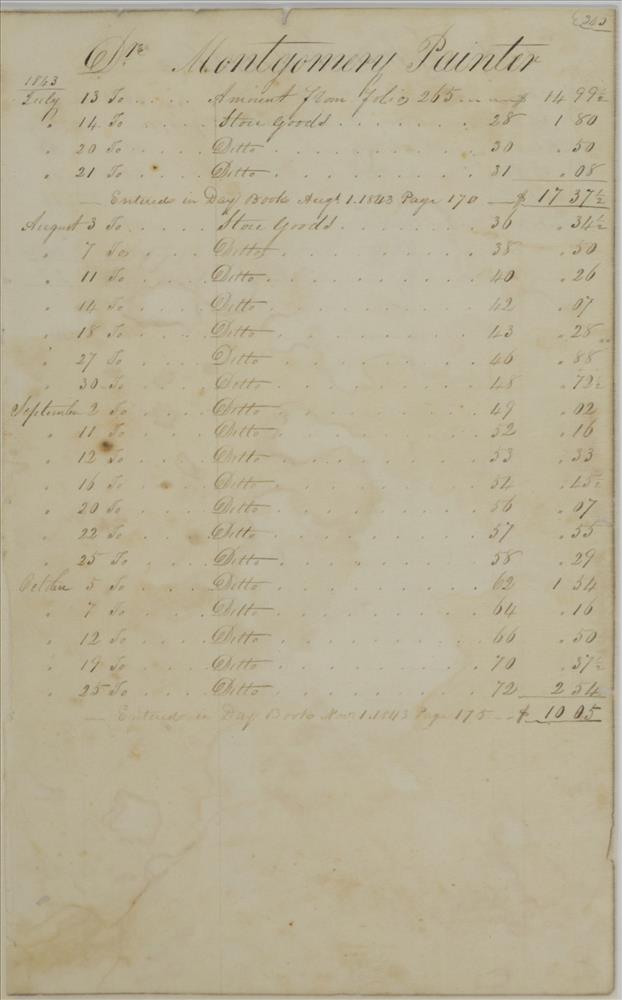 Dr. Montgomery Painter
1843
July 13 To . . . . Amount from folio 265 . . . $ 14 99½
" 14 To . . . . Store Goods . . . . . . . 28 1 80
" 20 To . . . . Ditto . . . . . . . . 30 . 50
" 21 To . . . . Ditto . . . . . . . . 31 . 08
— Entered in Day Book Augt 1. 1843 Page 170 — $ 17 37½
August 3 To . . . . Store Goods . . . . . . 36 . 34½
" 7 To . . . . Ditto . . . . . . . . 38 . 50
" 11 To . . . . Ditto . . . . . . . . 40 . 26
" 14 To . . . . Ditto . . . . . . . . 42 . 07
" 18 To . . . . Ditto . . . . . . . . 43 . 28
" 27 To . . . . Ditto . . . . . . . . 46 . 88
" 30 To . . . . Ditto . . . . . . . . 48 . 72½
September 2 To . . . . Ditto . . . . . . . . 49 . 02
" 11 To . . . . Ditto . . . . . . . . 52 . 16
" 12 To . . . . Ditto . . . . . . . . 53 . 33
" 16 To . . . . Ditto . . . . . . . . 54 . 45½
" 20 To . . . . Ditto . . . . . . . . 56 . 07
" 22 To . . . . Ditto . . . . . . . . 57 . 55
" 25 To . . . . Ditto . . . . . . . . 58 . 29
October 5 To . . . . Ditto . . . . . . . . 62 1 54
" 7 To . . . . Ditto . . . . . . . . 64 . 16
" 12 To . . . . Ditto . . . . . . . . 66 . 50
" 19 To . . . . Ditto . . . . . . . . 70 . 37½
" 25 To . . . . Ditto . . . . . . . . 72 2 54
— Entered in Day Book Nov 1. 1843 Page 175 — $ 10 05